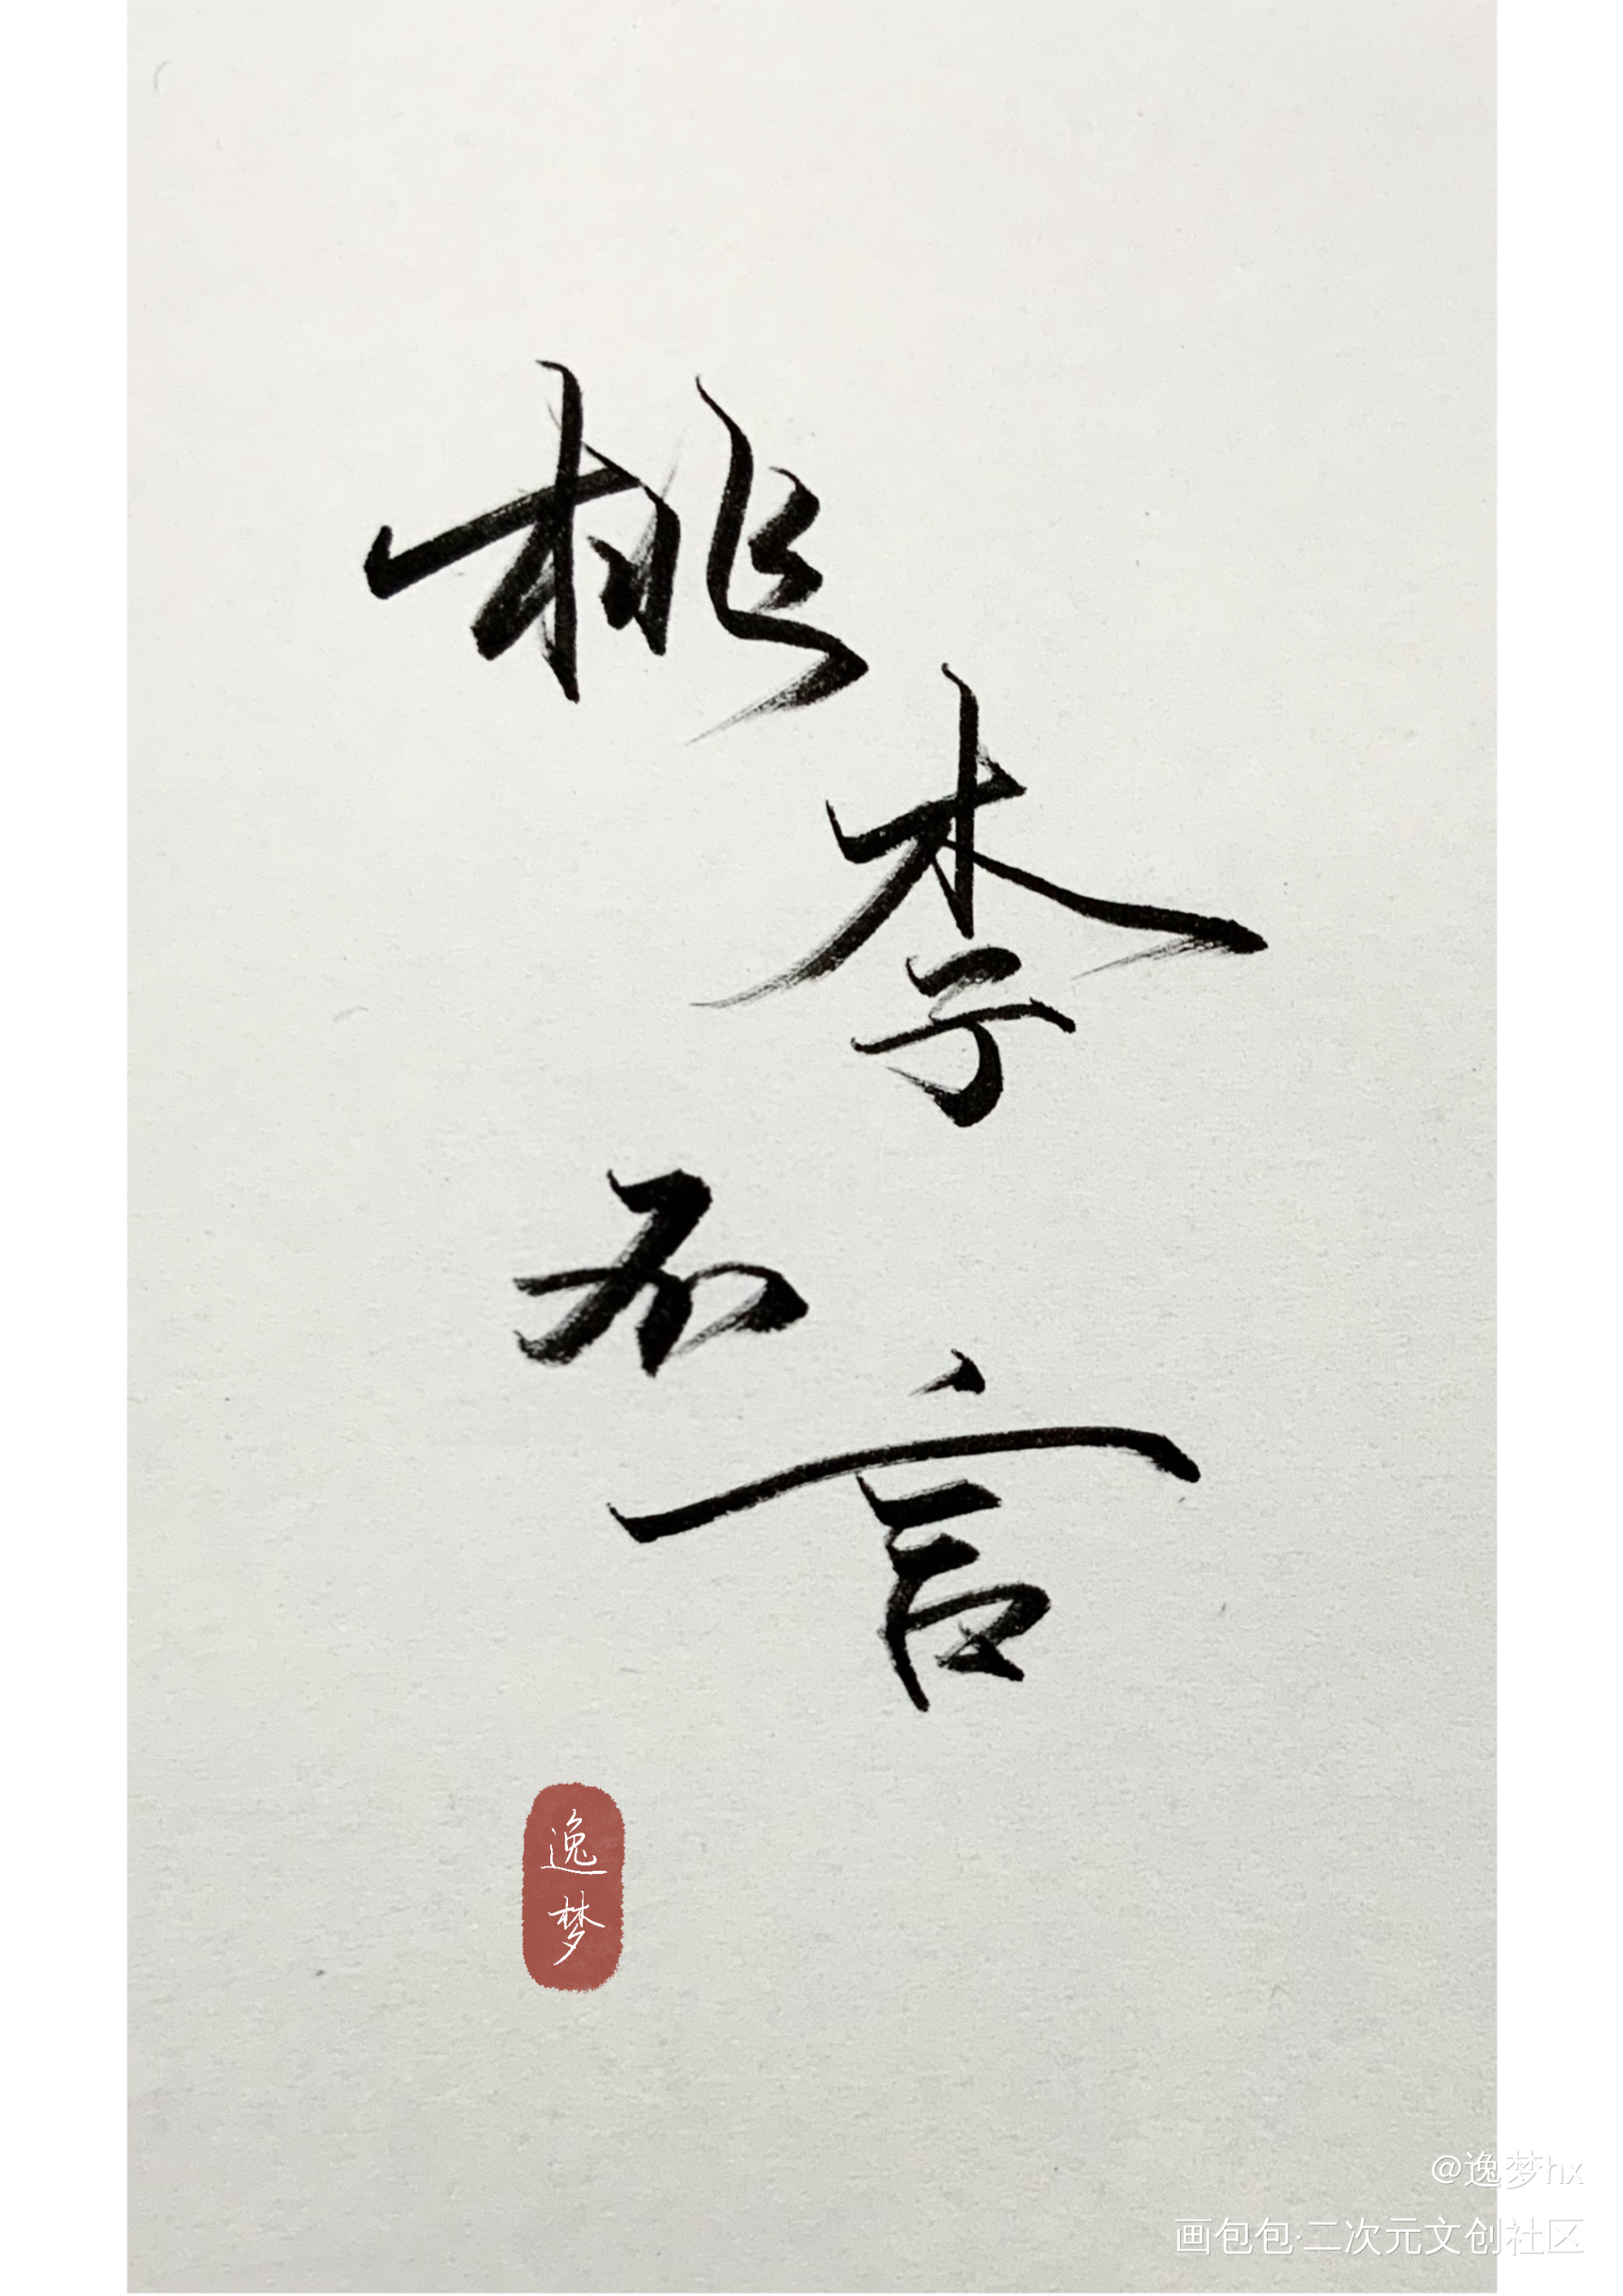 桃
李
不
言
逸
梦
@逸梦hx
画包包·二次元文创社区